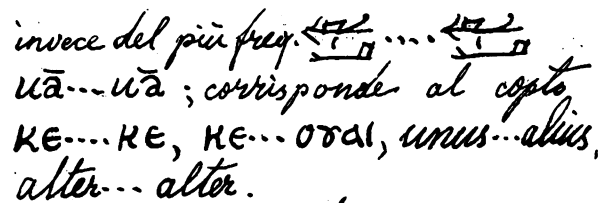 invece del più freq. .... 
uā...uā ; corrisponde al copto
ⲕⲉ....ⲕⲉ, ⲕⲉ...ⲟⲩⲁⲓ, unus...alius,
alter... alter.